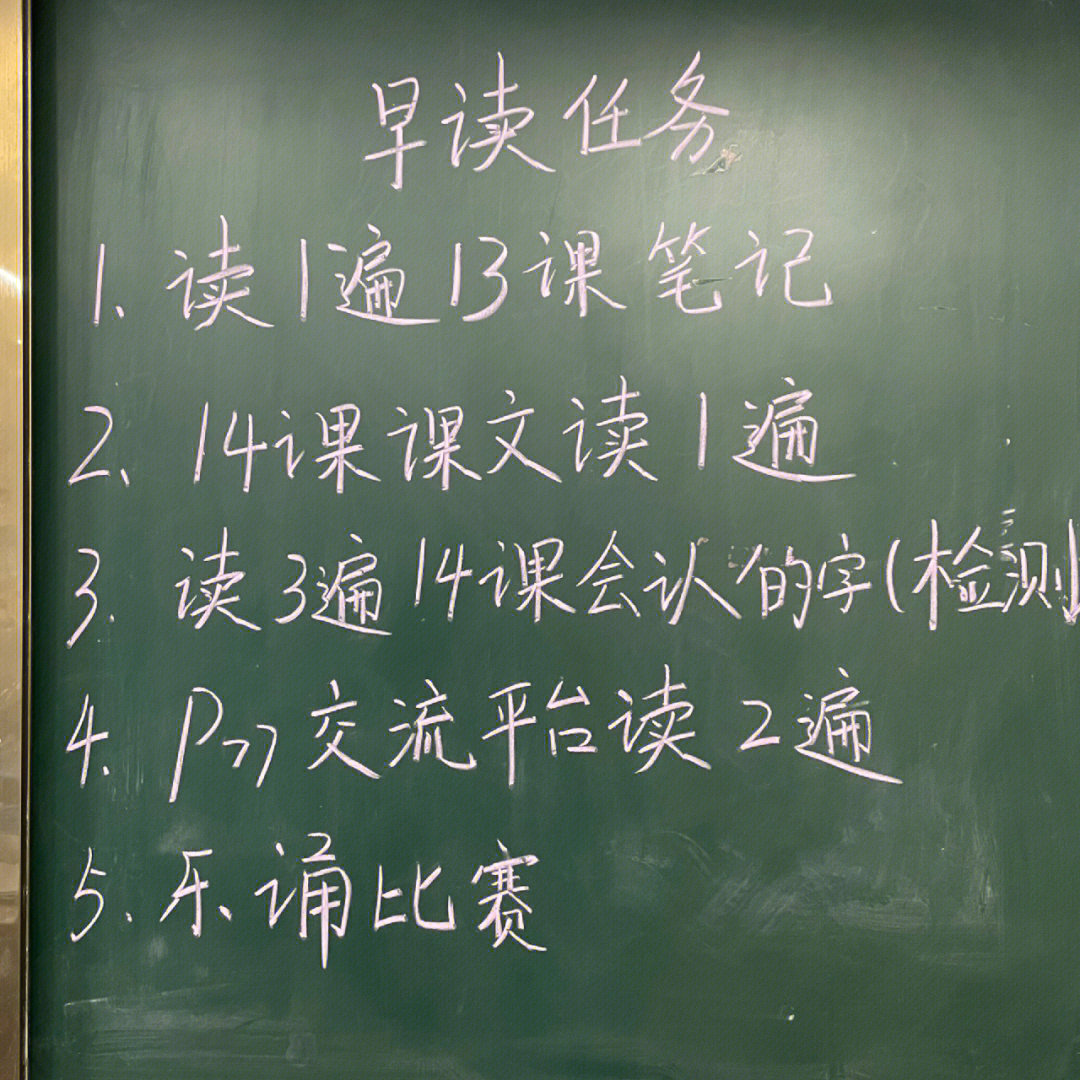 早读任务
1. 读1遍13课笔记
2、14课课文读1遍
3. 读3遍14课会认的字(检测
4. P77交流平台读2遍
5. 乐诵比赛